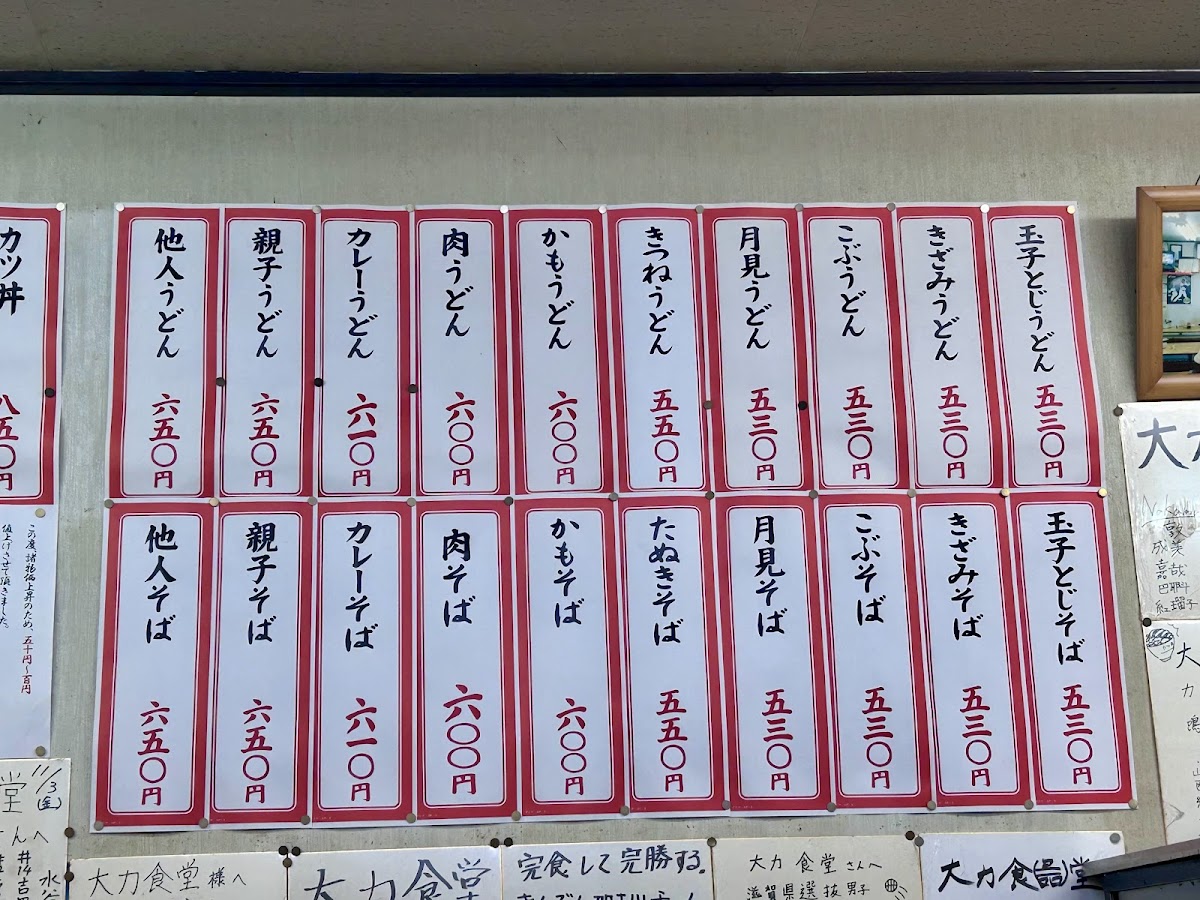 玉子とじうどん 五三〇円
きざみうどん 五三〇円
こぶうどん 五三〇円
月見うどん 五三〇円
きつねうどん 五五〇円
かもうどん 六〇〇円
肉うどん 六〇〇円
カレーうどん 六一〇円
親子うどん 六五〇円
他人うどん 六五〇円
玉子とじそば 五三〇円
きざみそば 五三〇円
こぶそば 五三〇円
月見そば 五三〇円
たぬきそば 五五〇円
かもそば 六〇〇円
肉そば 六〇〇円
カレーそば 六一〇円
親子そば 六五〇円
他人そば 六五〇円
カツ丼 八五〇円
この度、諸物価上昇のため、五十円~百円
値上げさせて頂きました。
11/3
(金)
堂
さんへ
大力食堂様へ
大力食堂
完食して完勝する。
大力食堂さんへ
滋賀県選抜男子
大力食堂
大力